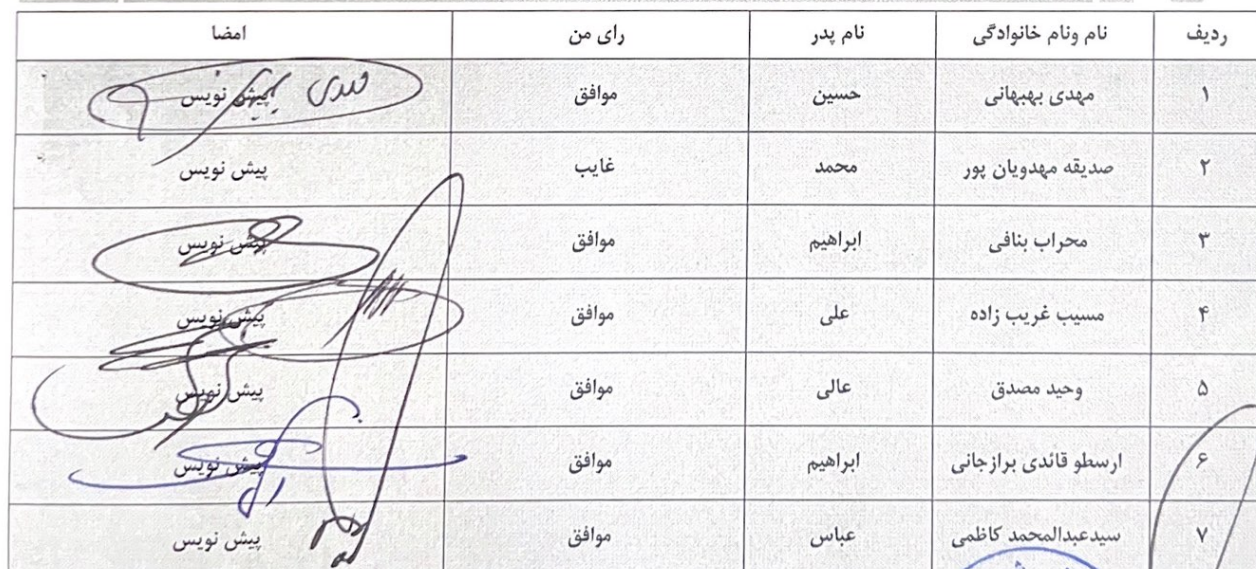 ردیف نام ونام خانوادگی نام پدر رای من امضا
۱ مهدی بهبهانی حسین موافق پیش نویس
۲ صدیقه مهدویان پور محمد غایب پیش نویس
۳ محراب بنافی ابراهیم موافق پیش نویس
۴ مسیب غریب زاده علی موافق پیش نویس
۵ وحید مصدق عالی موافق پیش نویس
۶ ارسطو قائدی برازجانی ابراهیم موافق پیش نویس
۷ سیدعبدالمحمد کاظمی عباس موافق پیش نویس